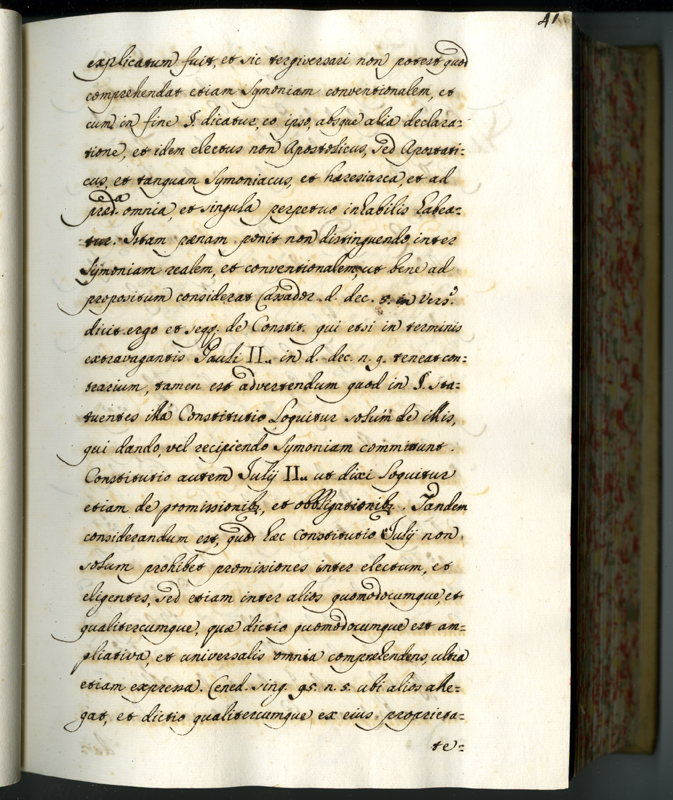 41
explicatum fuit, et sic tergiversari non potest quod
comprehendat etiam Symoniam conventionalem, et
cum in fine §. dicatur, eo ipso, absque alia declara=
tione, et idem electus non Apostolicus, sed Apostati=
cus, et tanquam Symoniacus, et haeresiarca, et ad
præd.ᵃ omnia, et singula perpetuo inhabilis habea=
tur. Istam pænam ponit non distinguendo inter
Symoniam realem, et conventionalem, ut bene ad
propositum considerat Cassador. d. dec. 5. in Vers.º
dicit ergo et seqq. de Constit. qui etsi in terminis
extravagantis Pauli II., in d. dec. n. 9. teneat con=
trarium, tamen est advertendum quod in §. sta=
tuentes illa Constitutio Loquitur solum de illis,
qui dando, vel recipiendo Symoniam committunt.
Constitutio autem Julij II., ut dixi Loquitur
etiam de promissionibꝫ, et obbligationibꝫ. Tandem
considerandum est, quod hæc constitutio Julij non
solum prohibet promissiones inter electum, et
eligentes, sed etiam inter alios quomodocumque, et
qualitercumque, quæ dictio quomodocumque est am=
pliativa, et universalis omnia comprehendens, ultra
etiam expressa. Cened. sing. 95. n. 5. ubi alios alle=
gat, et dictio qualitercumque ex eius proprieta=
te=